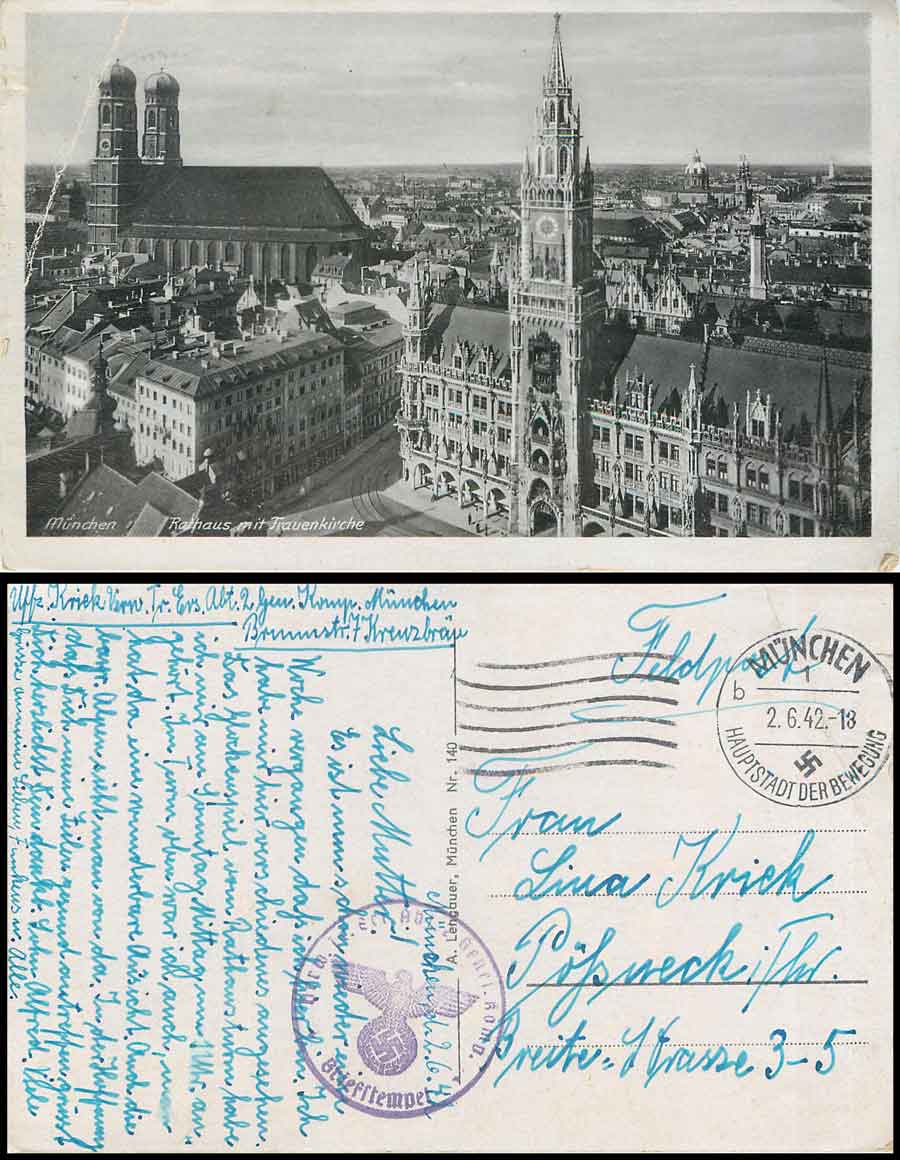 München Rathaus mit Frauenkirche
Uffz. Krick Verw. Tr. Ers. Abt. 2 Gen. Komp. München
Brunnstr. 7 Kreuzbräu
Feldpost
MÜNCHEN
b
2.6.42.-18
HAUPTSTADT DER BEWEGUNG
Frau
Lina Krick
Pößneck i/Thr.
Breite-Strasse 3-5
A. Lengauer, München Nr. 140
Briefstempel
München d. 2.6.42
Liebe Mutter!
Es ist nun schon wieder ein
Woche vergangen daß ich. Ich
habe mir hier verschiedenes angesehen.
Das Glockenspiel vom Rathausturm habe
ich mir am Sonntag Mittag um Uhr an-
gehört. Im Turm oben war ich auch, man
hat da eine wunderbare Aussicht. Auch die
Alpen sieht man von da. In der Hoffnung
daß Dich m. Zeilen gesund antreffen grüsst
Dich herzlichst Dein dankb. Sohn Alfred. Viele
Grüsse an u. Alle.